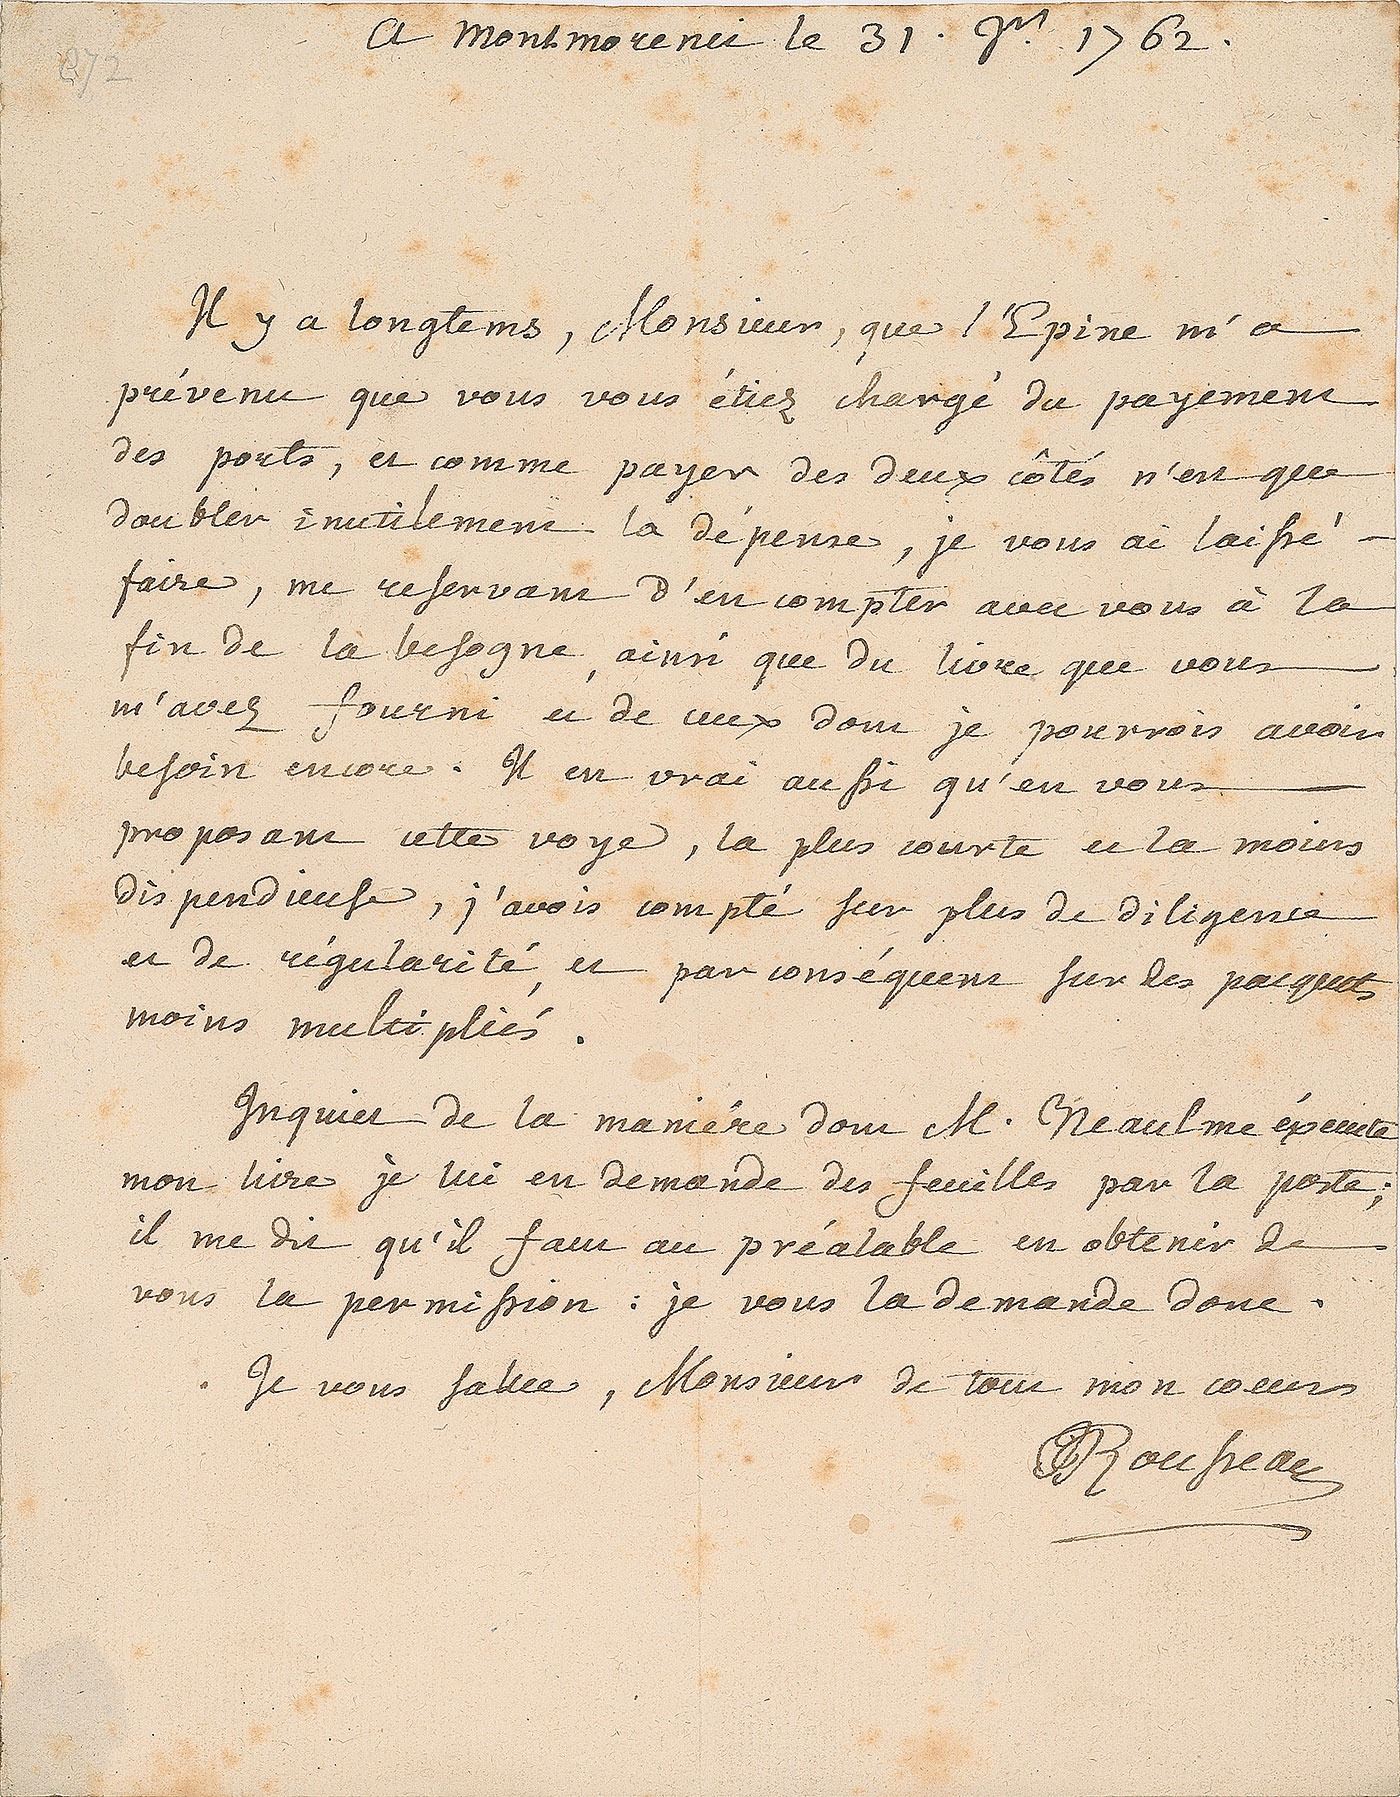 272
A Montmorenci le 31. Jer. 1762.
Il y a longtems, Monsieur, que l'Epine m'a
prévenu que vous vous étiez chargé du payement
des ports, et comme payer des deux côtés n'est que
doubler inutilement la dépense, je vous ai laissé
faire, me reservant d'en compter avec vous à la
fin de la besogne, ainsi que du livre que vous
m'avez fourni et de ceux dont je pourrois avoir
besoin encore. Il est vrai aussi qu'en vous
proposant cette voye, la plus courte et la moins
dispendieuse, j'avois compté sur plus de diligence
et de régularité, et par conséquent sur des pacquets
moins multipliés.
Inquiet de la maniére dont M. Neaulme éxecute
mon livre je lui en demande des feuilles par la poste;
il me dit qu'il faut au préalable en obtenir de
vous la permission : je vous la demande donc.
Je vous salue, Monsieur de tout mon coeur
JJRousseau